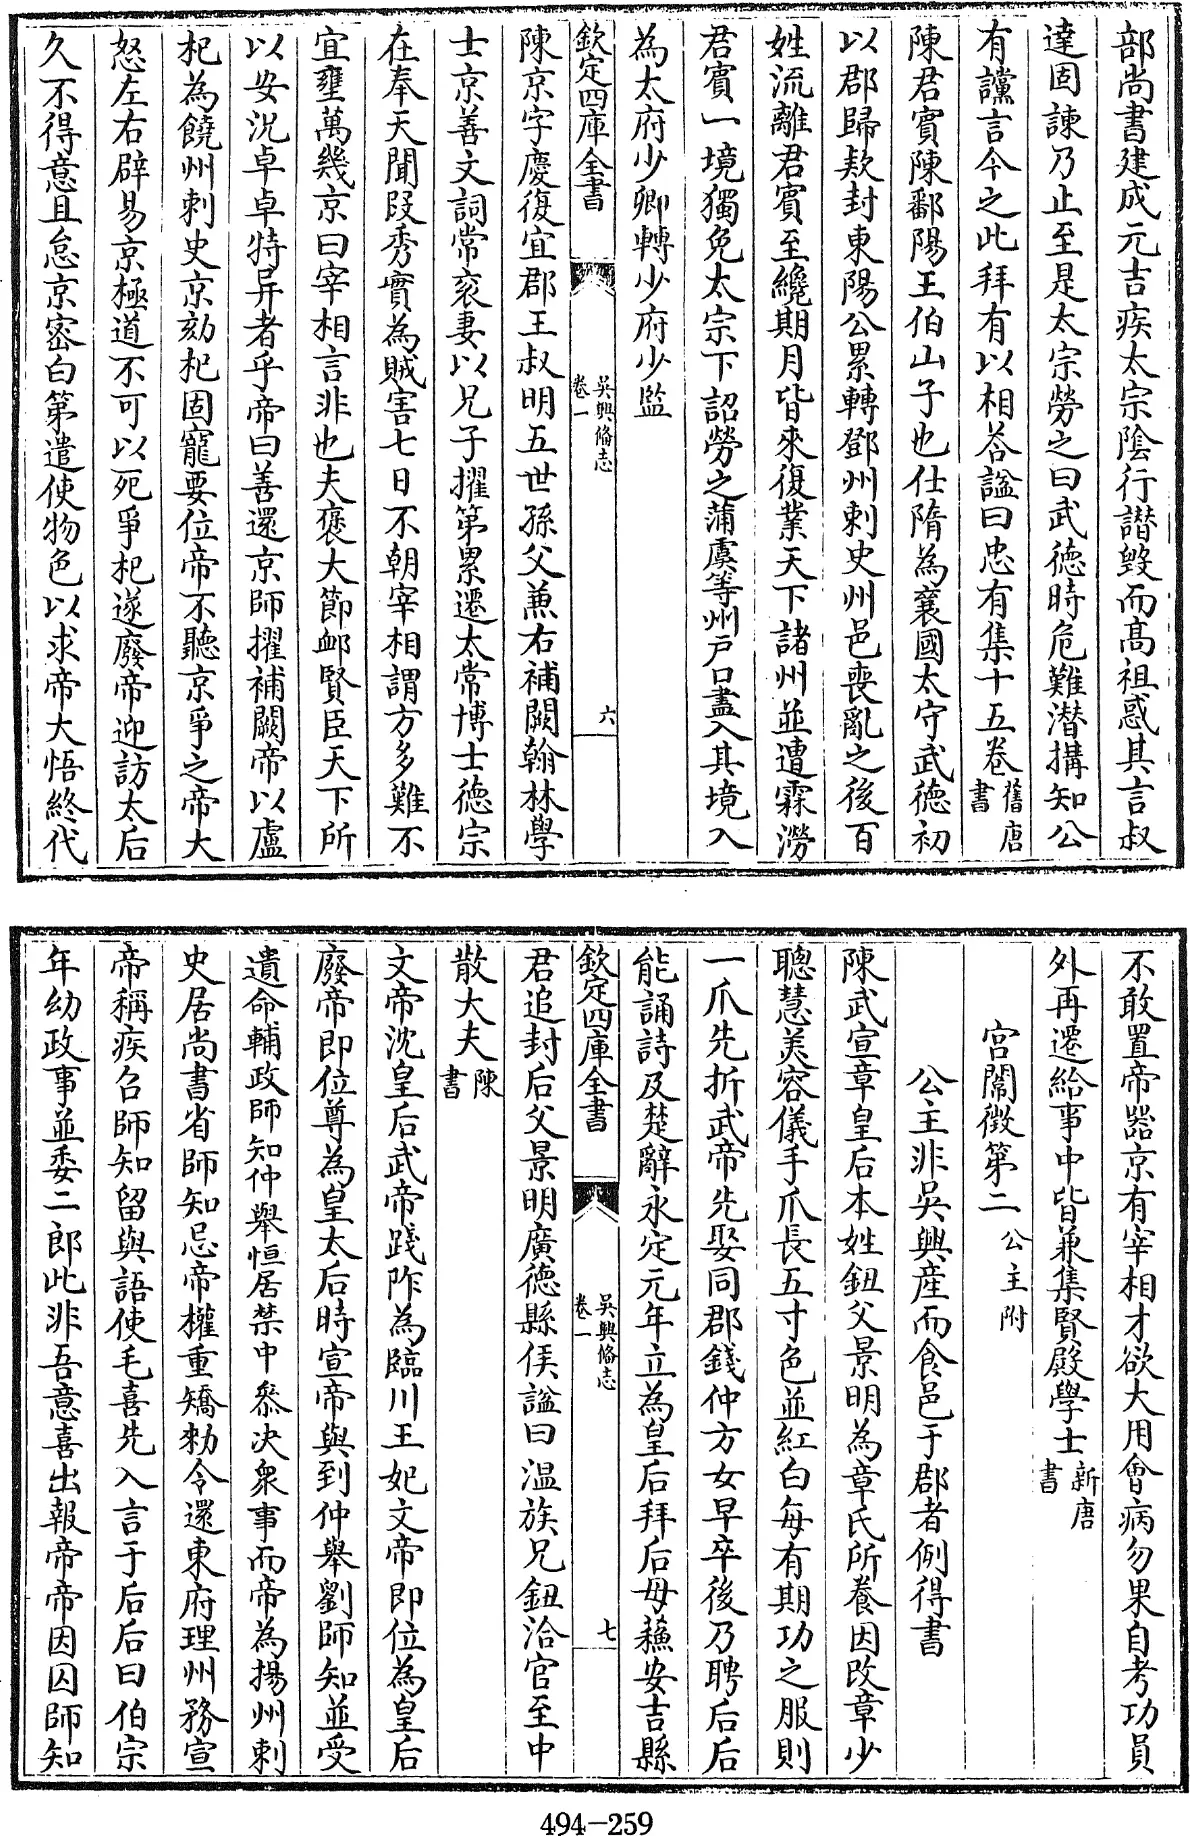 部尚書建成元吉疾太宗隂行譛毁而髙祖惑其言叔
達固諫乃止至是太宗勞之曰武徳時危難潜搆知公
有讜言今之此拜有以相答諡曰忠有集十五卷舊唐書
陳君賓陳鄱陽王伯山子也仕隋為襄國太守武徳初
以郡歸欵封東陽公累轉鄧州刺史州邑喪亂之後百
姓流離君賓至纔期月皆來復業天下諸州並遭霖澇
君賓一境獨免太宗下詔勞之蒲虞等州戸口盡入其境入
為太府少卿轉少府少監
欽定四庫全書 吳興備志 卷一 六
陳京字慶復宜郡王叔明五世孫父兼右補闕翰林學
士京善文詞常衮妻以兄子擢第累遷太常博士徳宗
在奉天聞叚秀實為賊害七日不朝宰相謂方多難不
宜壅萬幾京曰宰相言非也夫褒大節衈賢臣天下所
以安況卓卓特异者乎帝曰善還京師擢補闕帝以盧
杞為饒州刺史京劾杞固寵要位帝不聽京爭之帝大
怒左右辟易京極道不可以死爭杞遂廢帝迎訪太后
久不得意且怠京密白第遣使物色以求帝大悟終代
不敢置帝器京有宰相才欲大用㑹病勿果自考功員
外再遷給事中皆兼集賢殿學士新唐書
宫闈徵第二公主附
公主非吳興産而食邑于郡者例得書
陳武宣章皇后本姓鈕父景明為章氏所養因改章少
聰慧美容儀手爪長五寸色並紅白每有期功之服則
一爪先折武帝先娶同郡錢仲方女早卒後乃聘后后
能誦詩及楚辭永定元年立為皇后拜后母蘓安吉縣
欽定四庫全書 吳興備志 卷一 七
君追封后父景明廣徳縣侯諡曰温族兄鈕洽官至中
散大夫陳書
文帝沈皇后武帝踐阼為臨川王妃文帝即位為皇后
廢帝即位尊為皇太后時宣帝與到仲舉劉師知並受
遺命輔政師知仲舉恒居禁中叅決衆事而帝為揚州刺
史居尚書省師知忌帝權重矯勅令還東府理州務宣
帝稱疾召師知留與語使毛喜先入言于后后曰伯宗
年幼政事並委二郎此非吾意喜出報帝帝因囚師知
494-259